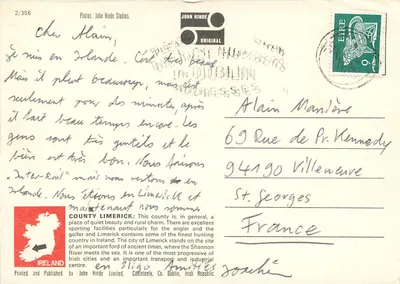 2/356
Photos: John Hinde Studios.
JOHN HINDE
ORIGINAL
EIRE
9
cher Alain,
Je suis en Irlande. C'est très beau
Mais il pleut beaucoup, mais
seulement pour des minutes, après
il fait beau temps encore. Les
gens sont très gentils et le
bien est très bon. Nous faisons
"Inter-Rail" mais nous restons en
Irlande. Nous étions en Limerick et
maintenant nous sommes
en Sligo Amitiés Joachim
Alain Manière
69 Rue de Pr. Kennedy
94190 Villeneuve
St. Georges
France
IRELAND
COUNTY LIMERICK: This county is, in general, a
place of quiet beauty and rural charm. There are excellent
sporting facilities particularly for the angler and the
golfer and Limerick contains some of the finest hunting
country in Ireland. The city of Limerick stands on the site
of an important ford of ancient times, where the Shannon
River meets the sea. It is one of the most progressive of
Irish cities and an important transport and industrial
centre.
Printed and Published by John Hinde Limited, Cabinteely, Co. Dublin, Irish Republic.